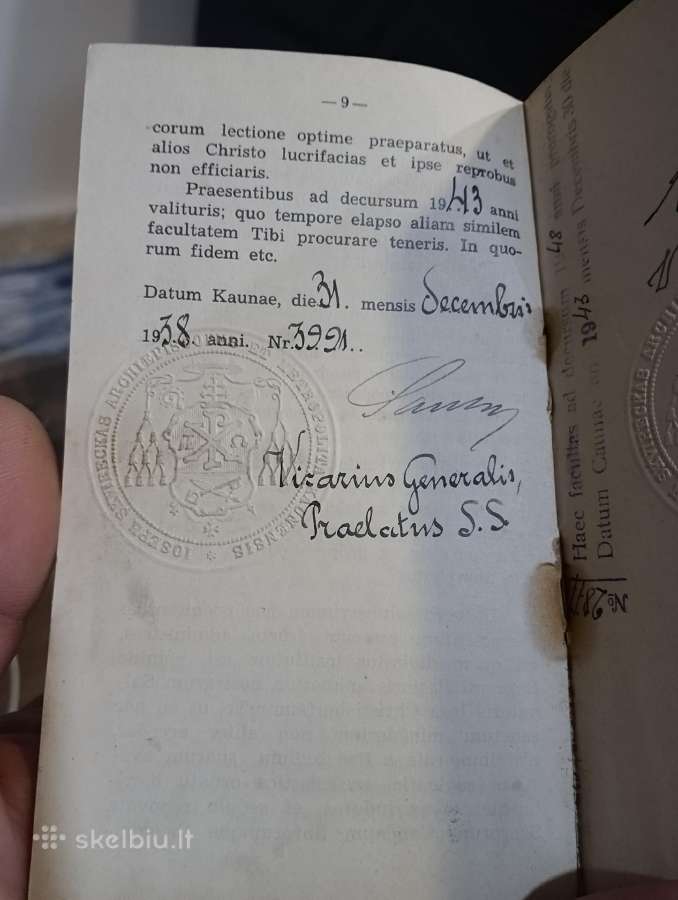 — 9 —
corum lectione optime praeparatus, ut et
alios Christo lucrifacias et ipse reprobus
non efficiaris.
Praesentibus ad decursum 1943 anni
valituris; quo tempore elapso aliam similem
facultatem Tibi procurare teneris. In quo-
rum fidem etc.
Datum Kaunae, die 31. mensis Decembris
1938. anni. Nr. 3991.
Vicarius Generalis,
Praelatus S. S.
IOSEPH SKVIRECKAS ARCHIEPISCOPUS ET METROPOLITA KAUNENSIS
Haec facultas ad decursum 1948 anni prorogatur.
Datum Caunae an 1943 mensis Decembris 30 die
№
skelbiu.lt